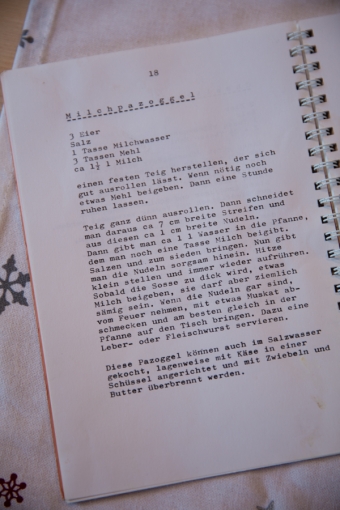 18
Milchpazoggel
3 Eier
Salz
1 Tasse Milchwasser
3 Tassen Mehl
ca 1½ l Milch
einen festen Teig herstellen, der sich
gut ausrollen lässt. Wenn nötig noch
etwas Mehl beigeben. Dann eine Stunde
ruhen lassen.
Teig ganz dünn ausrollen. Dann schneidet
man daraus ca 7 cm breite Streifen und
aus diesen ca 1 cm breite Nudeln.
Dann gibt man ca 1 l Wasser in die Pfanne,
dem man noch eine Tasse Milch beigibt.
Salzen und zum sieden bringen. Nun gibt
man die Nudeln sorgsam hinein. Hitze
klein stellen und immer wieder aufrühren.
Sobald die Sosse zu dick wird, etwas
Milch beigeben, sie darf aber ziemlich
sämig sein. Wenn die Nudeln gar sind,
vom Feuer nehmen, mit etwas Muskat ab-
schmecken und am besten gleich in der
Pfanne auf den Tisch bringen. Dazu eine
Leber- oder Fleischwurst servieren.
Diese Pazoggel können auch im Salzwasser
gekocht, lagenweise mit Käse in einer
Schüssel angerichtet und mit Zwiebeln und
Butter überbrennt werden.